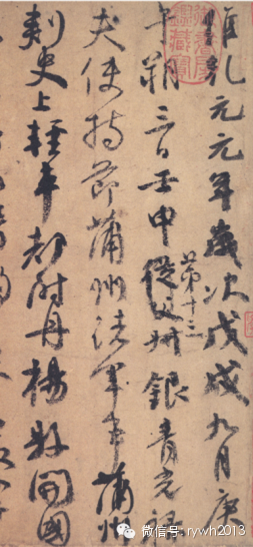 維乾元元年歲次戊戌九月庚
午朔三日壬申第十三從父叔銀青光祿
夫使持節蒲州諸軍事蒲州
刺史上輕車都尉丹楊縣開國
微信号: rywh2013